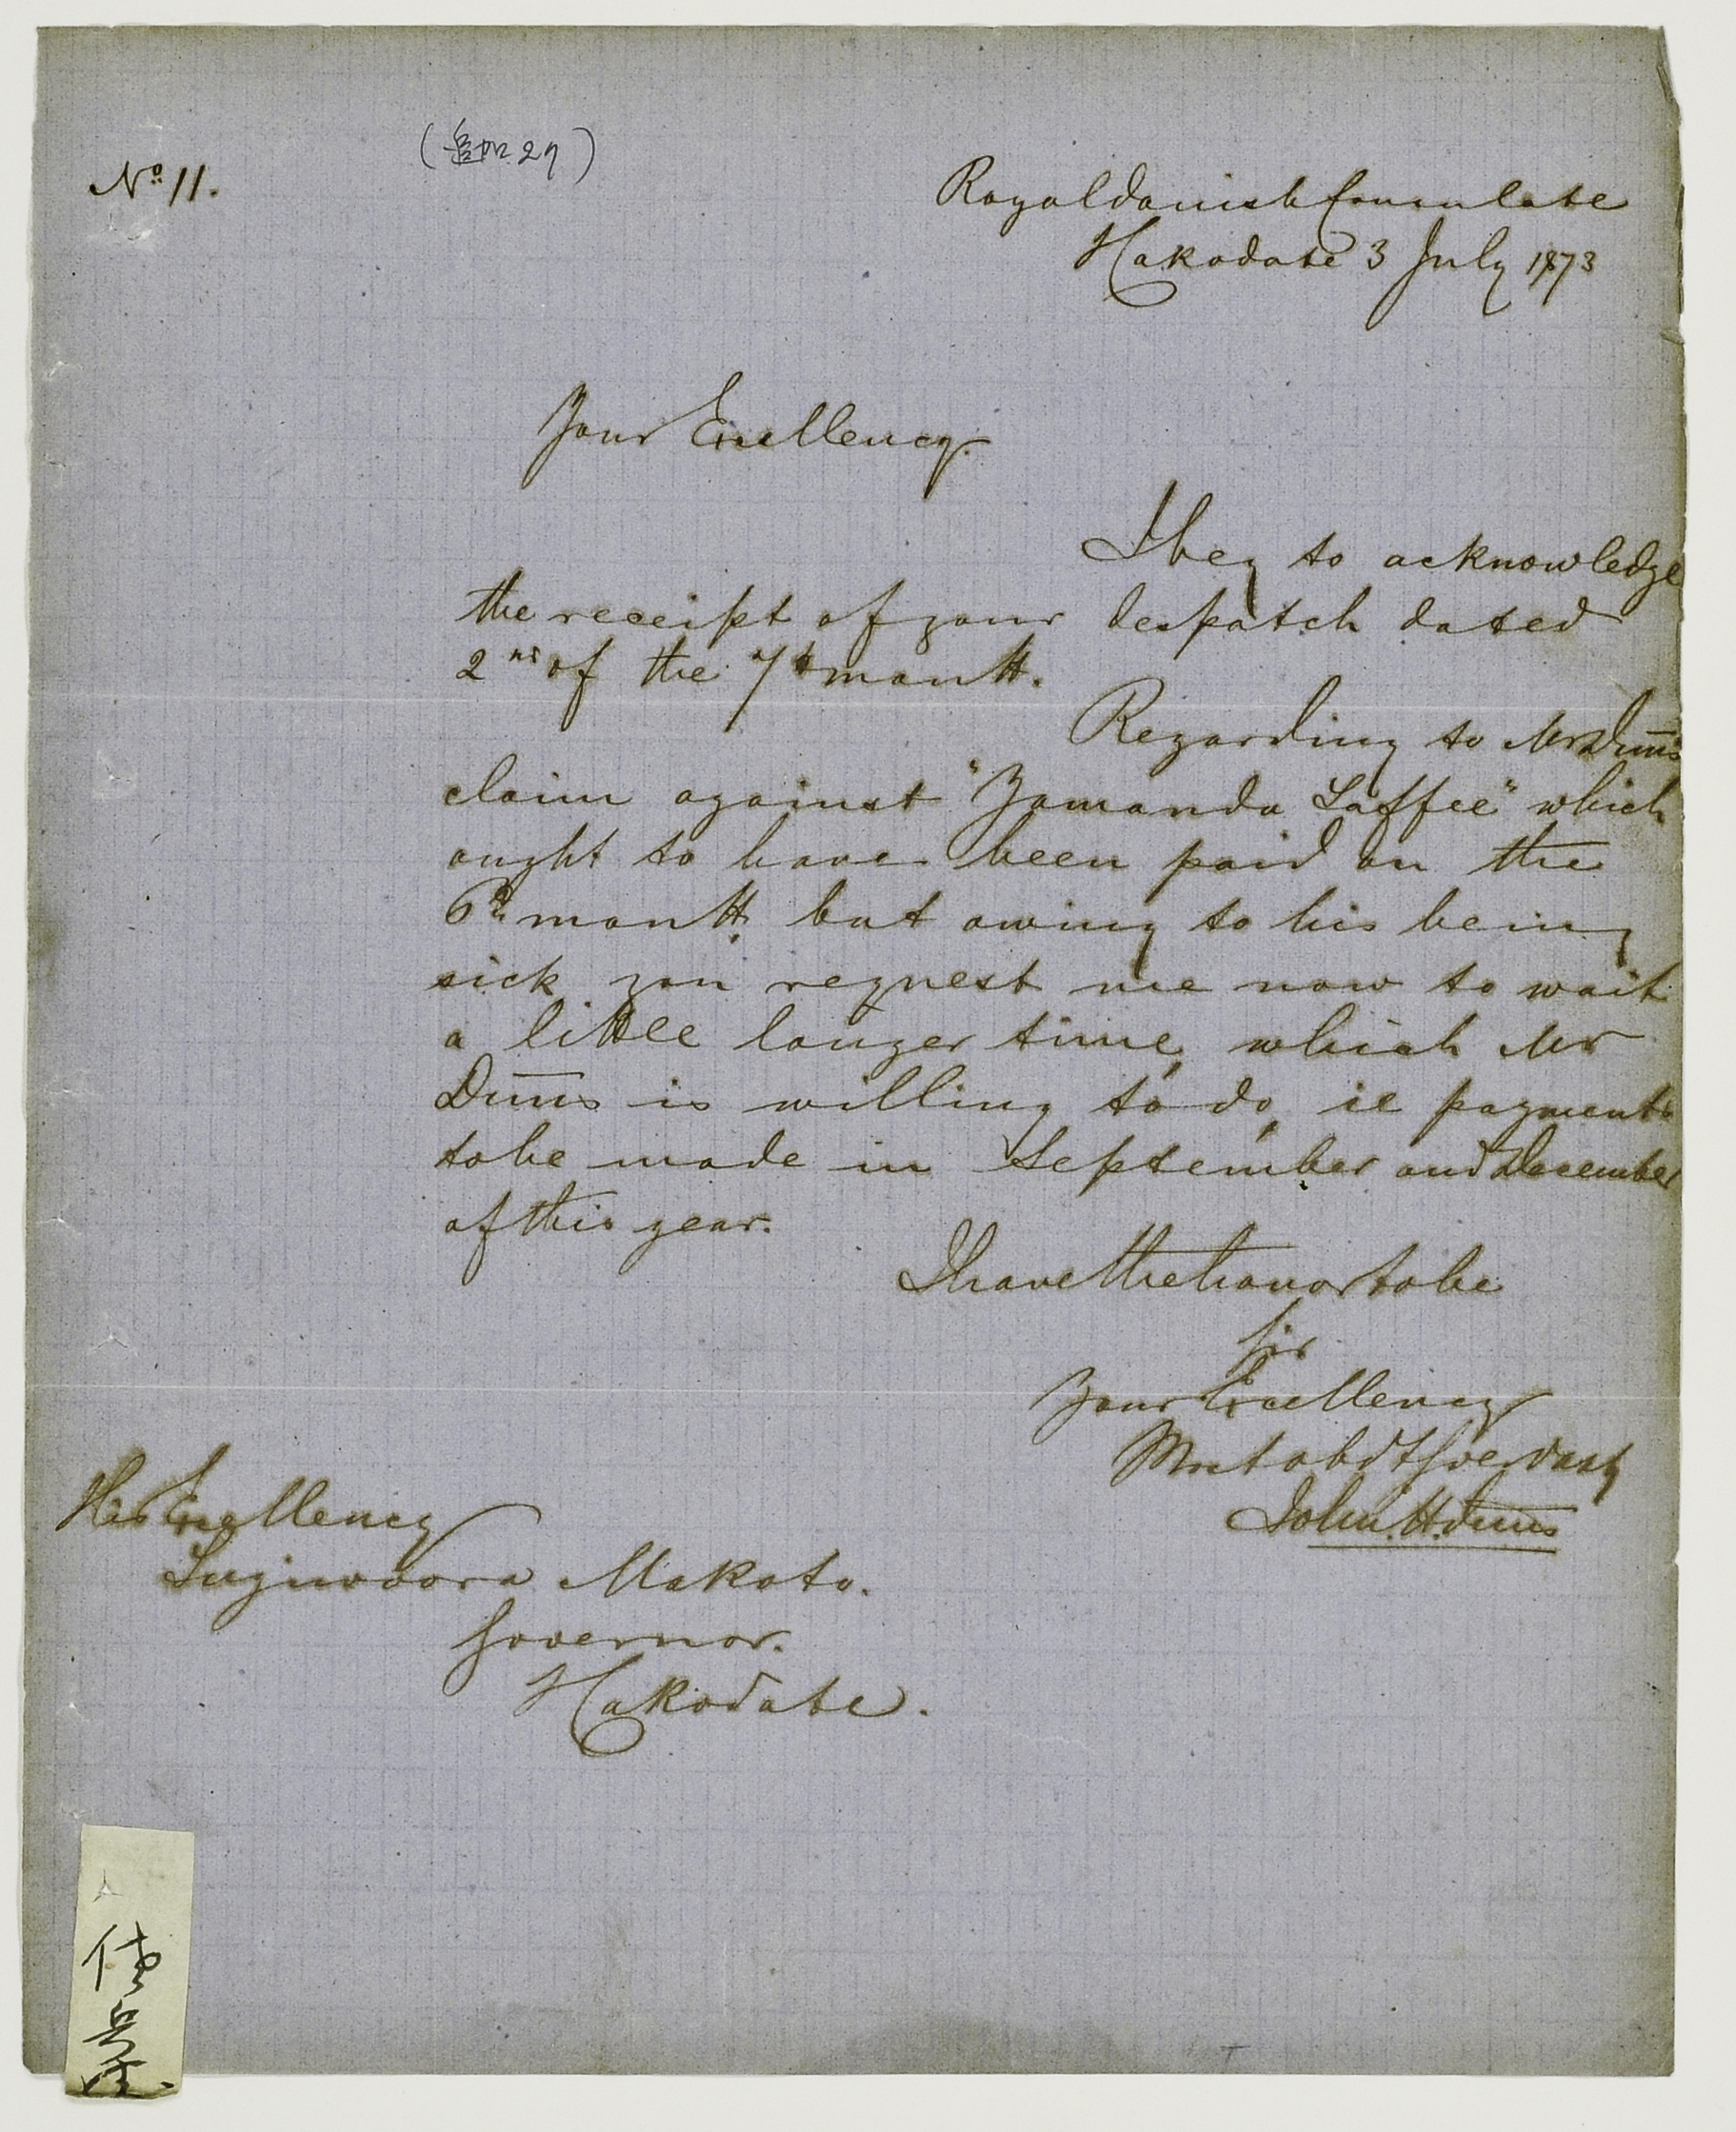 No 11.
(追加27)
Royal danish Consulate
Hakodate 3 July 1873
Your Excellency.
I beg to acknowledge
the receipt of your despatch dated
2nd of the 7th month.
Regarding to Mr Duus
claim against "Yamanda Saffee" which
ought to have been paid on the
6th month. but owing to his being
sick you request me now to wait
a little longer time, which Mr
Duus is willing to do, ie payments
to be made in September and December
of this year.
I have the honor to be
Sir
Your Excellency
Most obdt Servant
John. H. Duus
His Excellency
Sugiwoora Makoto.
Governor.
Hakodate.